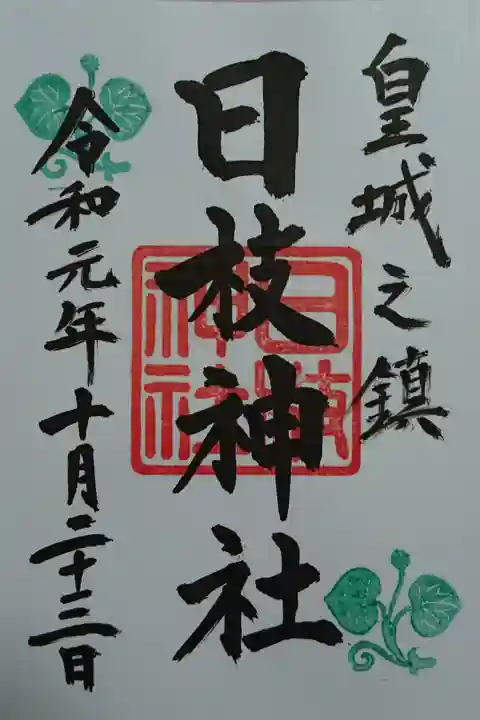 皇城之鎮
日枝神社
日枝
神社
令和元年十月二十三日